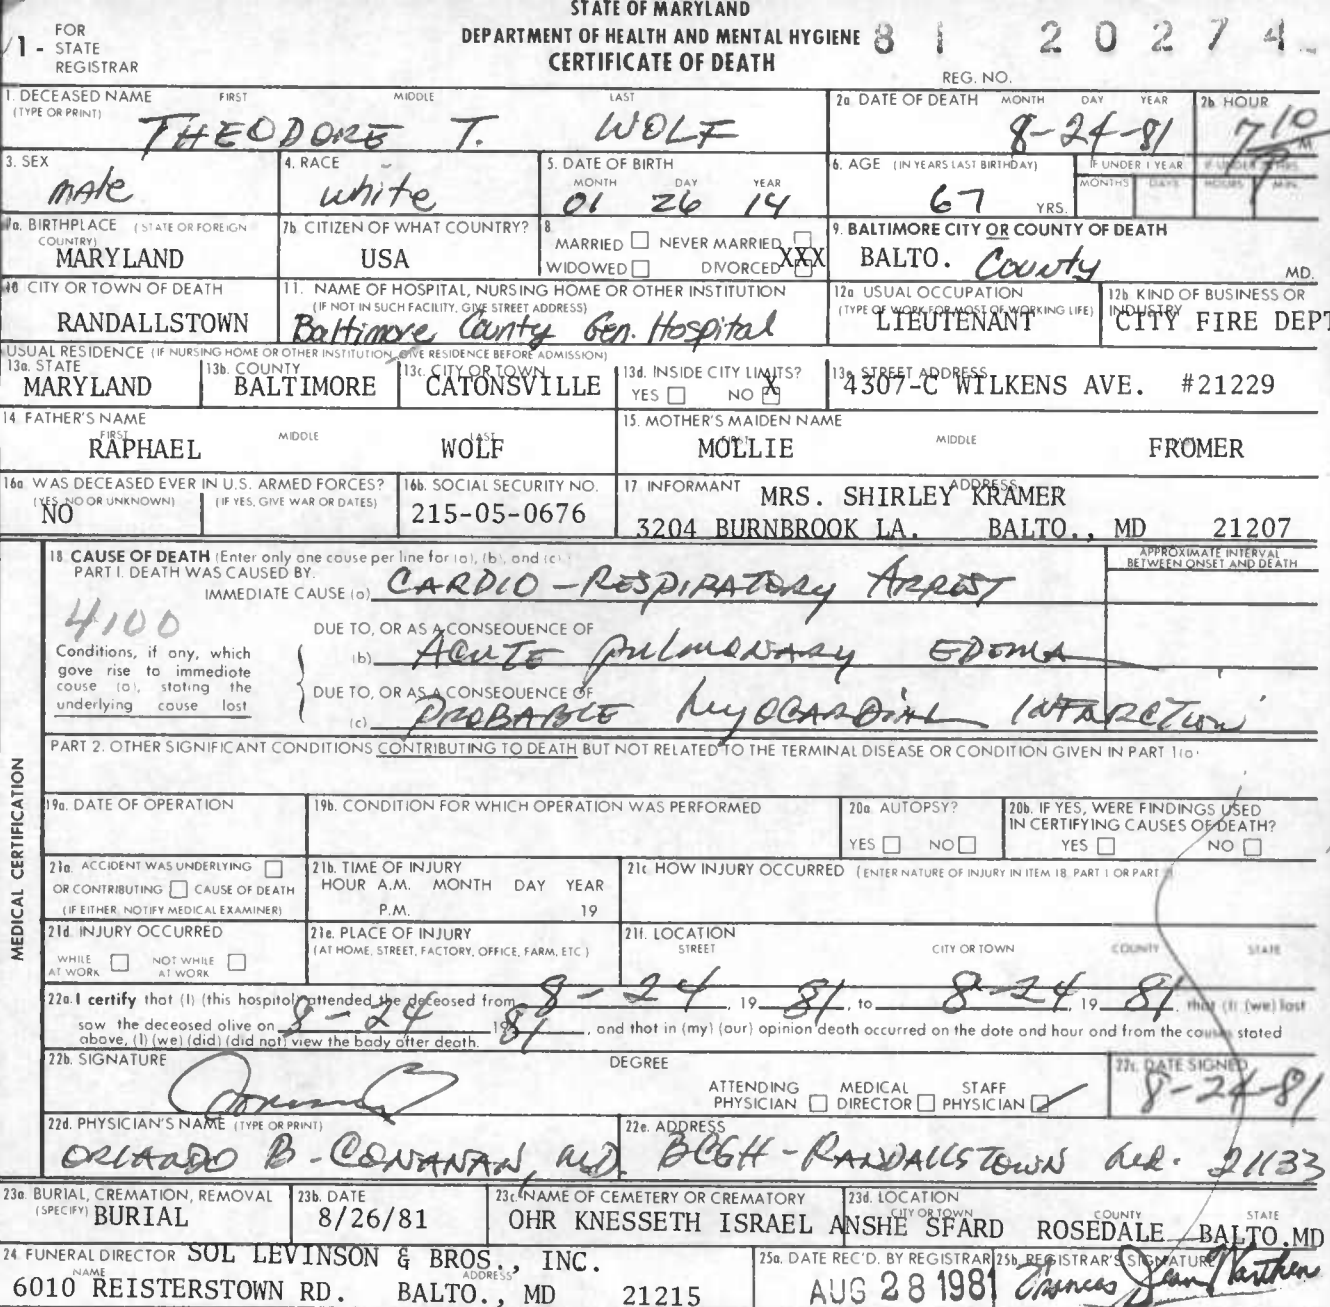 STATE OF MARYLAND
DEPARTMENT OF HEALTH AND MENTAL HYGIENE
CERTIFICATE OF DEATH
1 - FOR STATE REGISTRAR
81 20274
REG. NO.
1. DECEASED NAME (TYPE OR PRINT) FIRST MIDDLE LAST
THEODORE T. WOLF
2a. DATE OF DEATH MONTH DAY YEAR
8-24-81
2b. HOUR
7 10 M.
3. SEX
male
4. RACE
white
5. DATE OF BIRTH MONTH DAY YEAR
01 26 14
6. AGE (IN YEARS LAST BIRTHDAY)
67 YRS.
IF UNDER 1 YEAR MONTHS DAYS
IF UNDER HRS. HOURS MIN.
7a. BIRTHPLACE (STATE OR FOREIGN COUNTRY)
MARYLAND
7b. CITIZEN OF WHAT COUNTRY?
USA
8. MARRIED NEVER MARRIED
WIDOWED DIVORCED XXX
9. BALTIMORE CITY OR COUNTY OF DEATH
BALTO. County MD.
10. CITY OR TOWN OF DEATH
RANDALLSTOWN
11. NAME OF HOSPITAL, NURSING HOME OR OTHER INSTITUTION
(IF NOT IN SUCH FACILITY, GIVE STREET ADDRESS)
Baltimore County Gen. Hospital
12a. USUAL OCCUPATION (TYPE OF WORK FOR MOST OF WORKING LIFE)
LIEUTENANT
12b. KIND OF BUSINESS OR INDUSTRY
CITY FIRE DEPT
USUAL RESIDENCE (IF NURSING HOME OR OTHER INSTITUTION, GIVE RESIDENCE BEFORE ADMISSION)
13a. STATE
MARYLAND
13b. COUNTY
BALTIMORE
13c. CITY OR TOWN
CATONSVILLE
13d. INSIDE CITY LIMITS?
YES NO X
13e. STREET ADDRESS
4307-C WILKENS AVE. #21229
14. FATHER'S NAME FIRST MIDDLE LAST
RAPHAEL WOLF
15. MOTHER'S MAIDEN NAME FIRST MIDDLE
MOLLIE FROMER
16a. WAS DECEASED EVER IN U.S. ARMED FORCES?
(YES, NO OR UNKNOWN) (IF YES, GIVE WAR OR DATES)
NO
16b. SOCIAL SECURITY NO.
215-05-0676
17. INFORMANT ADDRESS
MRS. SHIRLEY KRAMER
3204 BURNBROOK LA. BALTO., MD 21207
MEDICAL CERTIFICATION
18. CAUSE OF DEATH (Enter only one cause per line for (a), (b), and (c).)
APPROXIMATE INTERVAL BETWEEN ONSET AND DEATH
PART I. DEATH WAS CAUSED BY.
IMMEDIATE CAUSE (a) CARDIO-RESPIRATORY ARREST
4100
DUE TO, OR AS A CONSEQUENCE OF
(b) ACUTE PULMONARY EDEMA
Conditions, if any, which gave rise to immediate cause (a), stating the underlying cause last
DUE TO, OR AS A CONSEQUENCE OF
(c) PROBABLE MYOCARDIAL INFARCTION
PART 2. OTHER SIGNIFICANT CONDITIONS CONTRIBUTING TO DEATH BUT NOT RELATED TO THE TERMINAL DISEASE OR CONDITION GIVEN IN PART 1(a)
19a. DATE OF OPERATION
19b. CONDITION FOR WHICH OPERATION WAS PERFORMED
20a. AUTOPSY?
YES NO
20b. IF YES, WERE FINDINGS USED IN CERTIFYING CAUSES OF DEATH?
YES NO
21a. ACCIDENT WAS UNDERLYING
OR CONTRIBUTING CAUSE OF DEATH
(IF EITHER, NOTIFY MEDICAL EXAMINER)
21b. TIME OF INJURY
HOUR A.M. MONTH DAY YEAR
P.M. 19
21c. HOW INJURY OCCURRED (ENTER NATURE OF INJURY IN ITEM 18, PART 1 OR PART
21d. INJURY OCCURRED
WHILE AT WORK NOT WHILE AT WORK
21e. PLACE OF INJURY
(AT HOME, STREET, FACTORY, OFFICE, FARM, ETC.)
21f. LOCATION
STREET CITY OR TOWN COUNTY STATE
22a. I certify that (I) (this hospital) attended the deceased from 8-24, 19 81, to 8-24, 19 81, that (I) (we) last
saw the deceased alive on 8-24 19 81, and that in (my) (our) opinion death occurred on the date and hour and from the causes stated
above, (I) (we) (did) (did not) view the body after death.
22b. SIGNATURE DEGREE
ATTENDING PHYSICIAN MEDICAL DIRECTOR STAFF PHYSICIAN
22c. DATE SIGNED
8-24-81
22d. PHYSICIAN'S NAME (TYPE OR PRINT)
ORLANDO B. CONANAN, M.D.
22e. ADDRESS
BCGH - RANDALLSTOWN MD. 21133
23a. BURIAL, CREMATION, REMOVAL (SPECIFY)
BURIAL
23b. DATE
8/26/81
23c. NAME OF CEMETERY OR CREMATORY
OHR KNESSETH ISRAEL ANSHE SFARD
23d. LOCATION CITY OR TOWN COUNTY STATE
ROSEDALE BALTO.MD
24. FUNERAL DIRECTOR NAME ADDRESS
SOL LEVINSON & BROS., INC.
6010 REISTERSTOWN RD. BALTO., MD 21215
25a. DATE REC'D. BY REGISTRAR
AUG 28 1981
25b. REGISTRAR'S SIGNATURE
Frances Jean Warthen